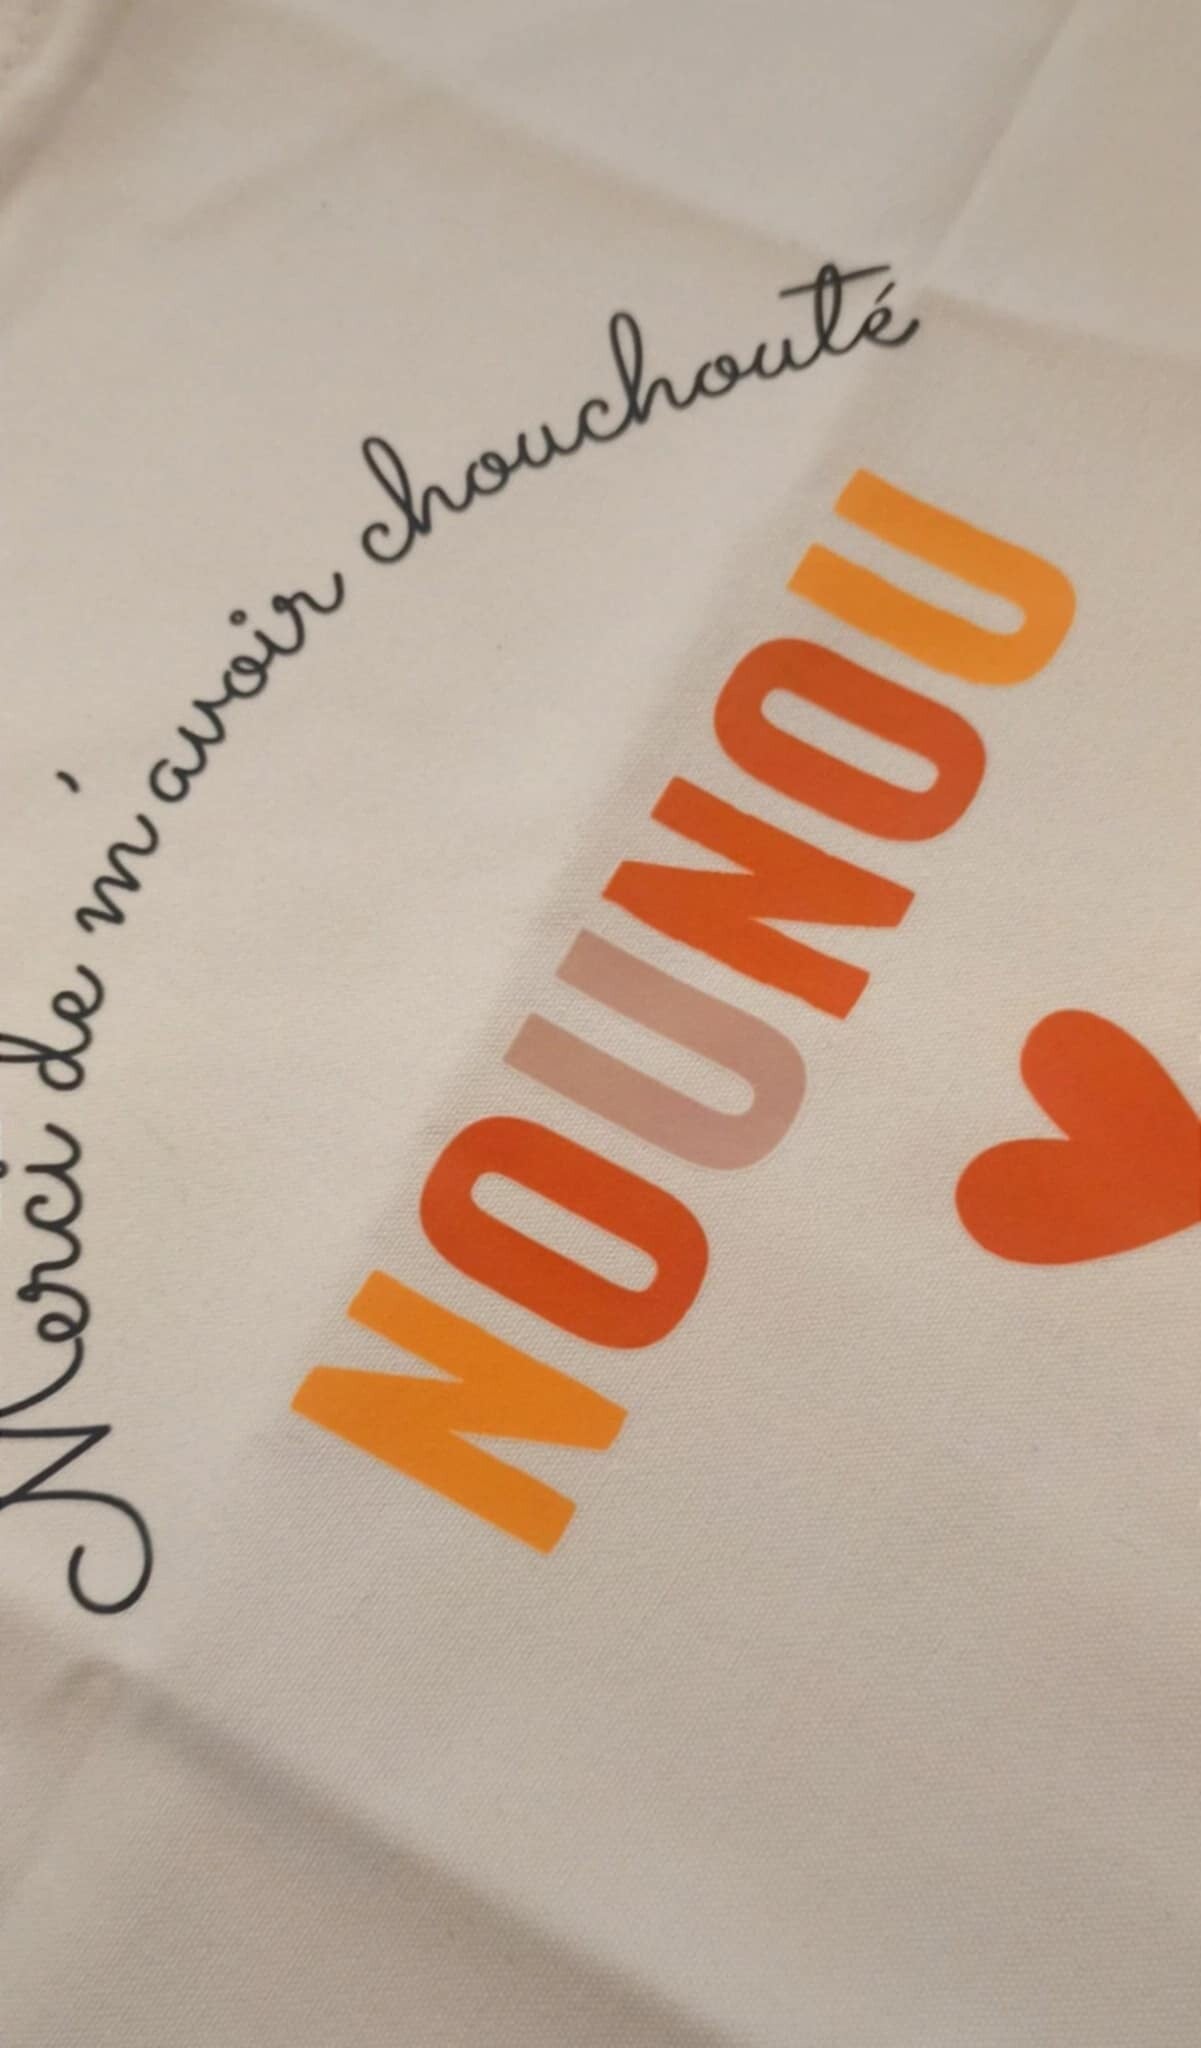 Merci de m'avoir chouchouté
NOUNOU